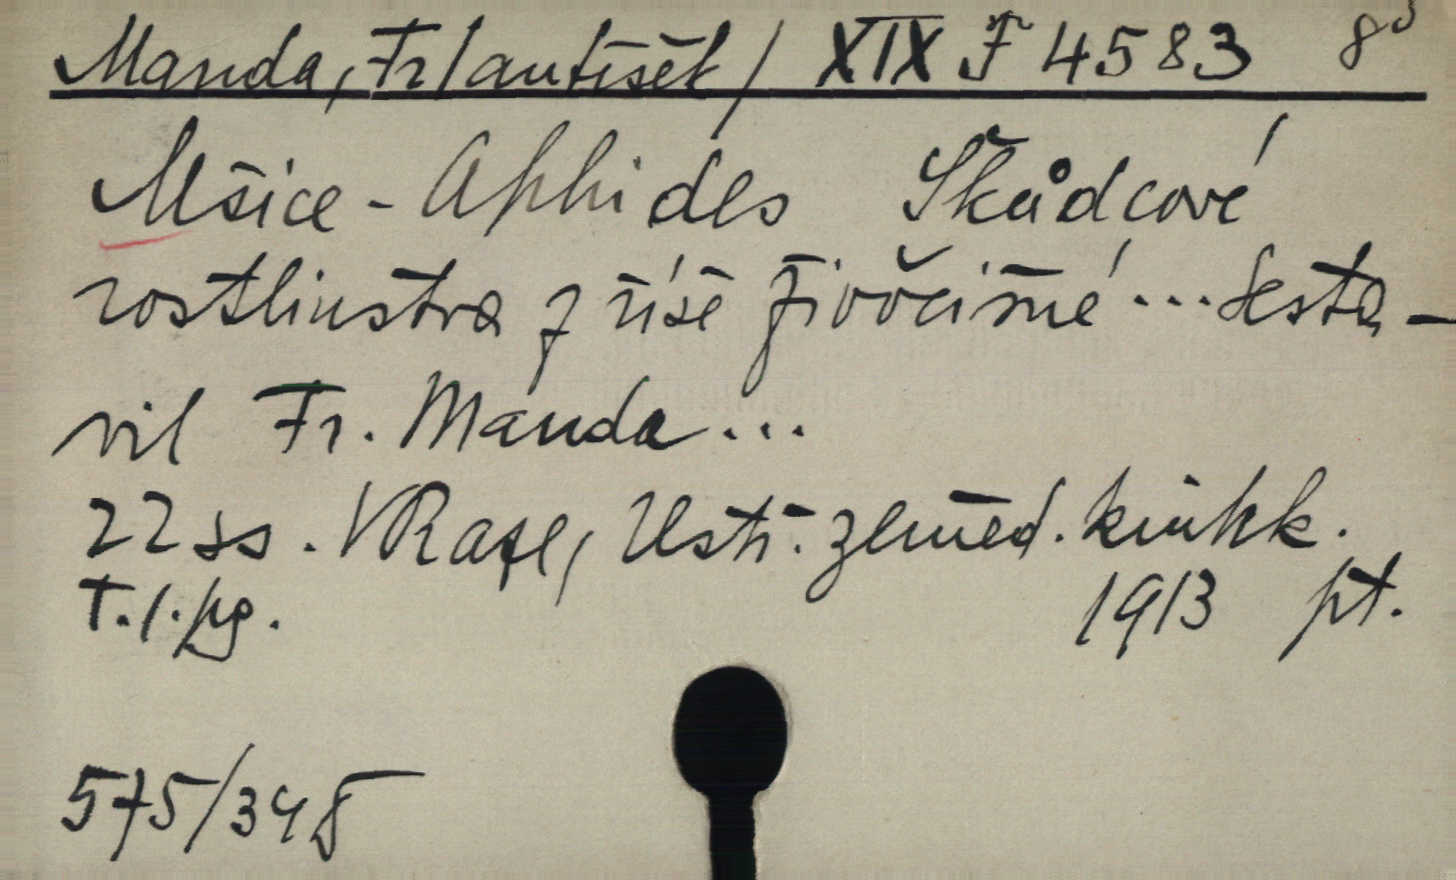 Manda, Fr/antišek/ XIX F 4583 8°
Mšice - Aphides Škůdcové
rostlinstva z říše živočišné ... Sesta-
vil Fr. Manda ...
22 ss. V Praze, Ústř. zeměd. knihk.
T. 1. pg. 1913 pt.
575/348